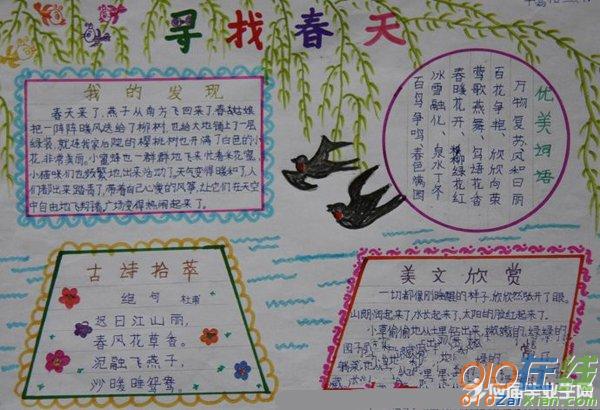 寻找春天
我的发现
春天来了,燕子从南方飞回来了,春姑娘
把一阵阵暖风送给了柳树,也给大地铺上了一层
绿装,就连我家后院的樱桃树也开满了白色的小
花,非常美丽。小蜜蜂也一群群地飞来忙着采花蜜,
小猫咪们也频繁地出来活动了,天气变得暖和了,人
们都出来踏青了,带着自己心爱的风筝,让它们在天空
中自由地飞翔着,广场变得热闹起来了。
优美词语
万物复苏 风和日丽
百花争艳、欣欣向荣
莺歌燕舞、鸟语花香
春暖花开、柳绿花红
冰雪融化、泉水丁冬
百鸟争鸣、春色满园
古诗拾萃
绝句 杜甫
迟日江山丽,
春风花草香。
泥融飞燕子,
沙暖睡鸳鸯。
美文欣赏
一切都像刚睡醒的样子,欣欣然张开了眼。
山朗润起来了,水长起来了,太阳的脸红起来了。
小草偷偷地从土里钻出来,嫩嫩的,绿绿的
910在线
910zaixian.com